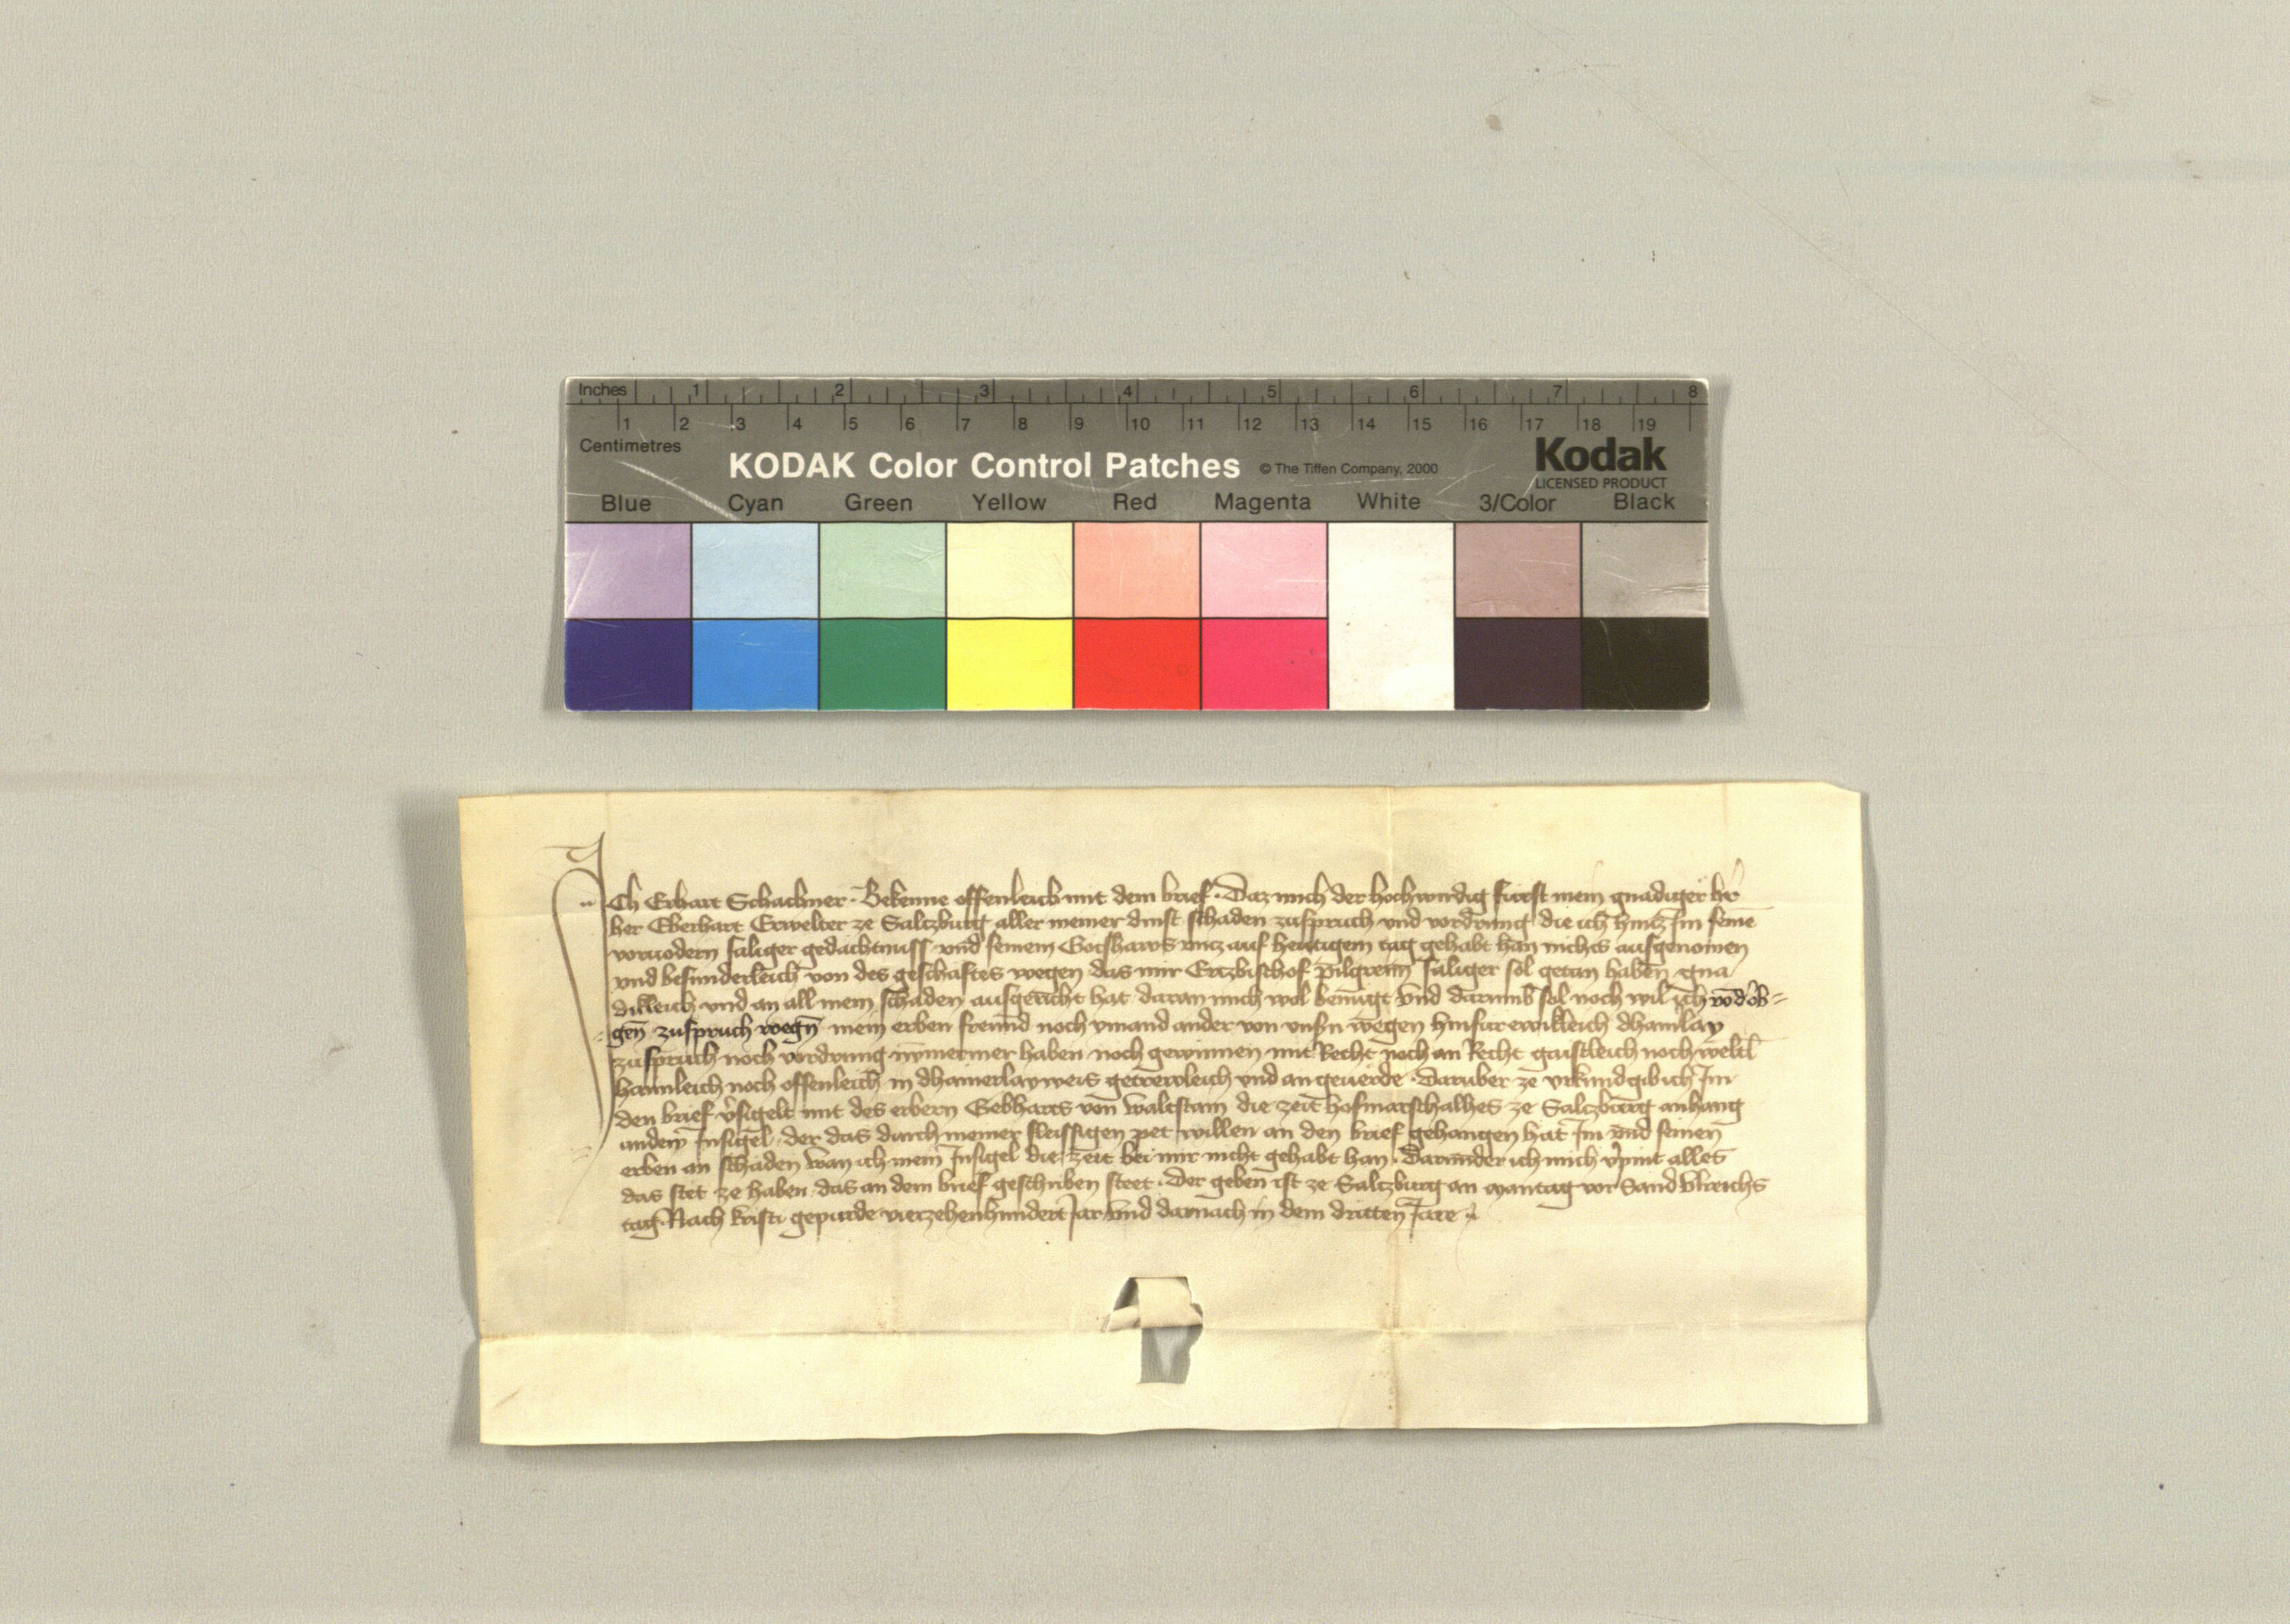 Inches 1 2 3 4 5 6 7 8
1 2 3 4 5 6 7 8 9 10 11 12 13 14 15 16 17 18 19
Centimetres
KODAK Color Control Patches © The Tiffen Company, 2000 Kodak
LICENSED PRODUCT
Blue Cyan Green Yellow Red Magenta White 3/Color Black
ICh Erhart Schachner. Bekenne offenleich mit dem brief. Daz mich der hochwirdig fürst mein gnädiger her
her Eberhart Erwelter ze Salczburg aller meiner dinst schäden zuspruch vnd vordrung die ich hincz Im seine
voruodern säliger gedächtnuss vnd seinem Gotshaws vncz auf hewtigem tag gehabt han nichts ausgenomen
vnd besunderleich von des geschäftes wegen das mir Erczbischof pilgreim säliger sol getan haben gnä
dikleich vnd an all mein schäden ausgericht hat daran mich wol benügt vnd darumb sol noch wil ich vo d' ob=
gen zuspruch wegn mein erben freund noch ymand ander von vnsn wegen hinfür ewikleich dhainlay
zuspruch noch vordrung nymermer haben noch gewinnen mit Recht noch an Recht gaistleich noch weltl
haimleich noch offenleich in dhainerlay weis getrewleich vnd an geuerde. Darüber ze vrkund gib ich Im
den brief v'sigelt mit des erbern Gebharts von Waltstain die zeit hofmarschalhes ze Salczburg anhang
undem Insigel, der das durch meiner fleissigen pet willen an den brief gehangen hat Im vnd seinen
erben an schaden wan ich mein Insigel die zeit bei mir nicht gehabt han. Darunder ich mich v'pint alles
das stet ze haben das an dem brief geschriben steet. Der geben ist ze Salczburg an mantag vor Sand Vlreichs
tag. Nach kristi gepurde vierzehenhundert Jar vnd darnach in dem dritten Jare